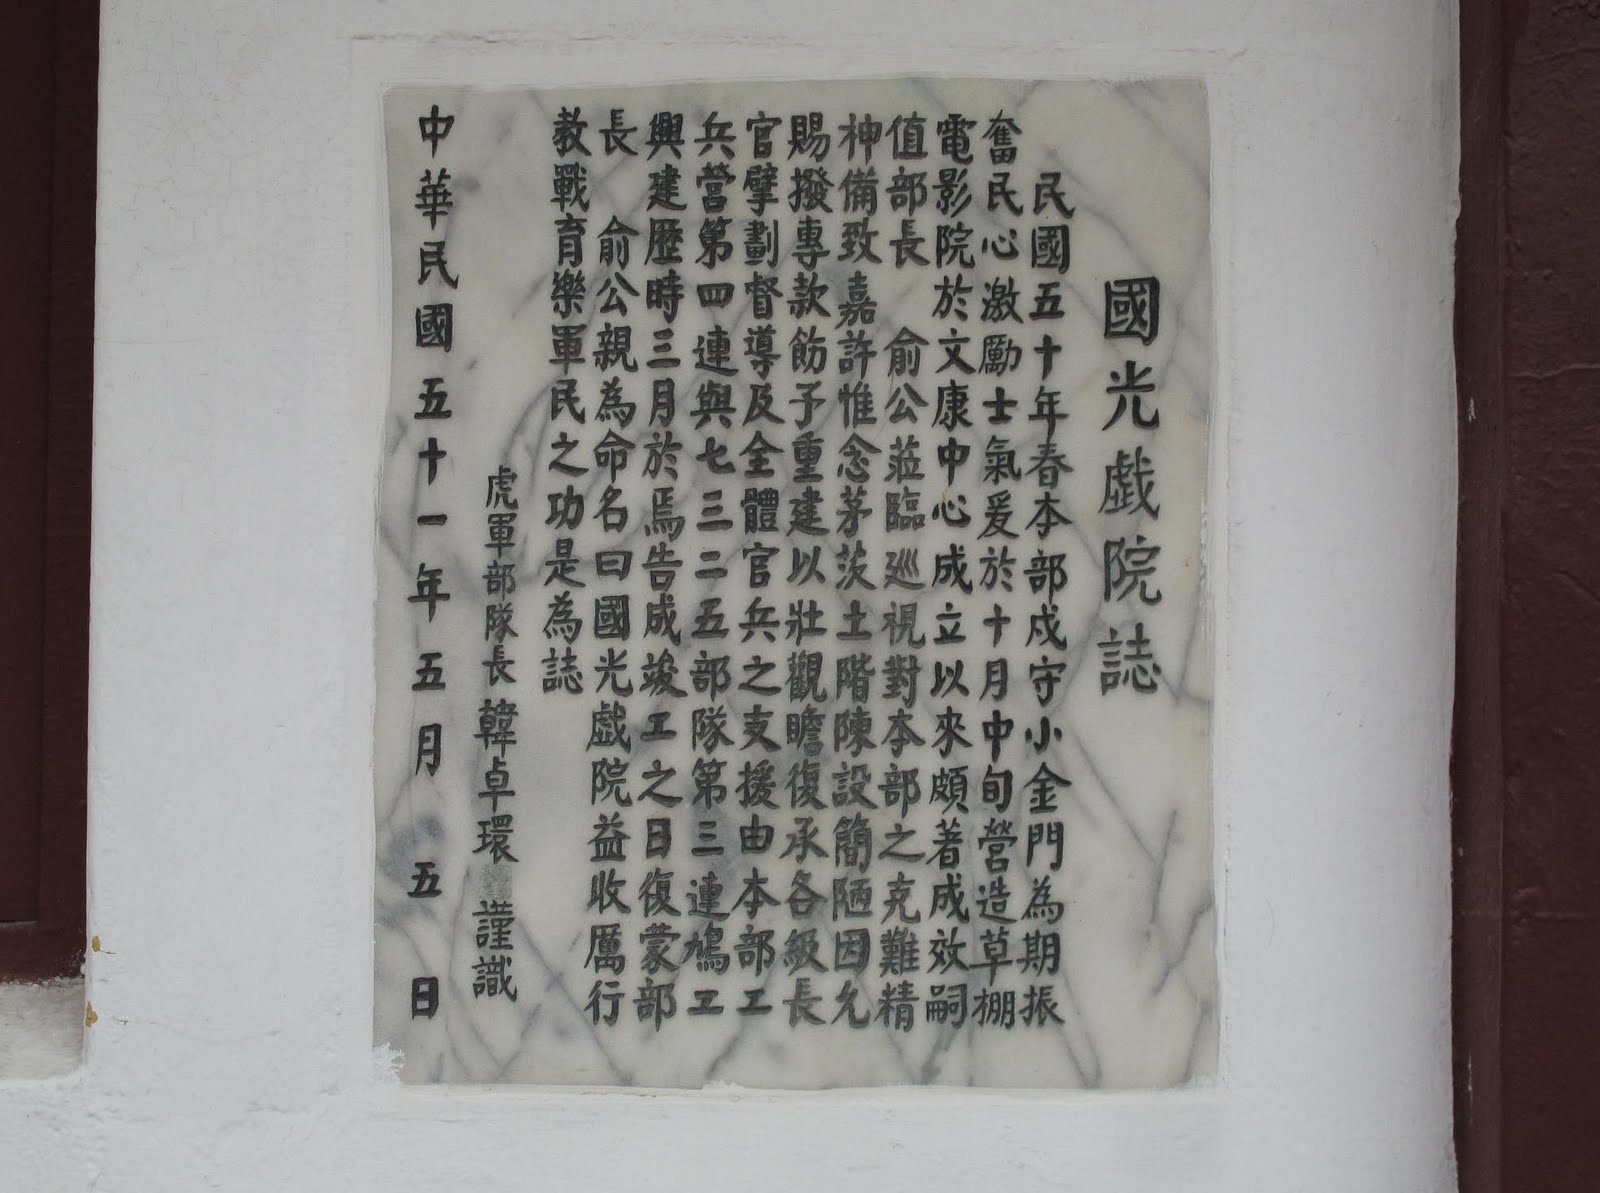 國光戲院誌
民國五十年春本部戍守小金門為期振
奮民心激勵士氣爰於十月中旬營造草棚
電影院於文康中心成立以來頗著成效嗣
值部長 俞公蒞臨巡視對本部之克難精
神備致嘉許惟念茅茨土階陳設簡陋因允
賜撥專款飭予重建以壯觀瞻復承各級長
官擘劃督導及全體官兵之支援由本部工
兵營第四連與七三二五部隊第三連鳩工
興建歷時三月於焉告成竣工之日復蒙部
長 俞公親為命名曰國光戲院益收厲行
教戰育樂軍民之功是為誌
虎軍部隊長韓卓環謹識
中華民國五十一年五月五日